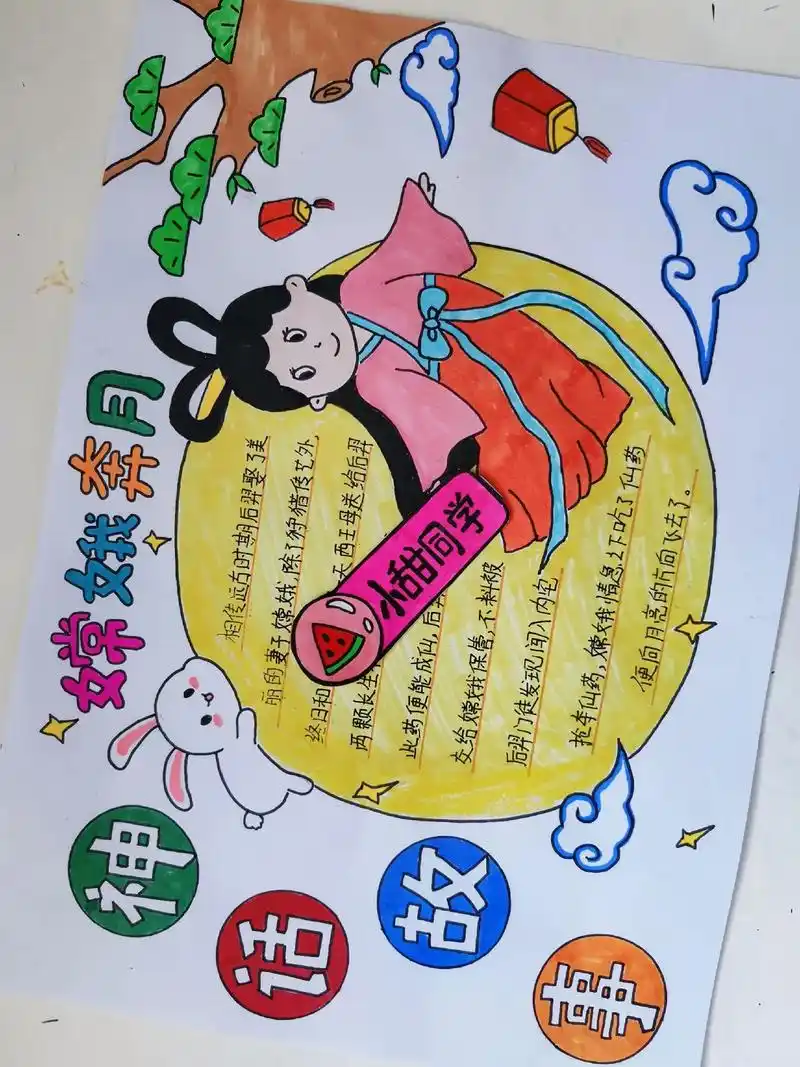 嫦娥奔月
相传远古时期后羿娶了美
丽的妻子嫦娥,除了狩猎传艺外
终日和 天西王母送给后羿
两颗长生
此药便能成仙,后
交给嫦娥保管,不料被
后羿门徒发现,闯入内宅
抢夺仙药,嫦娥情急之下吃了仙药
便向月亮的方向飞去了。
小甜同学
神话故事